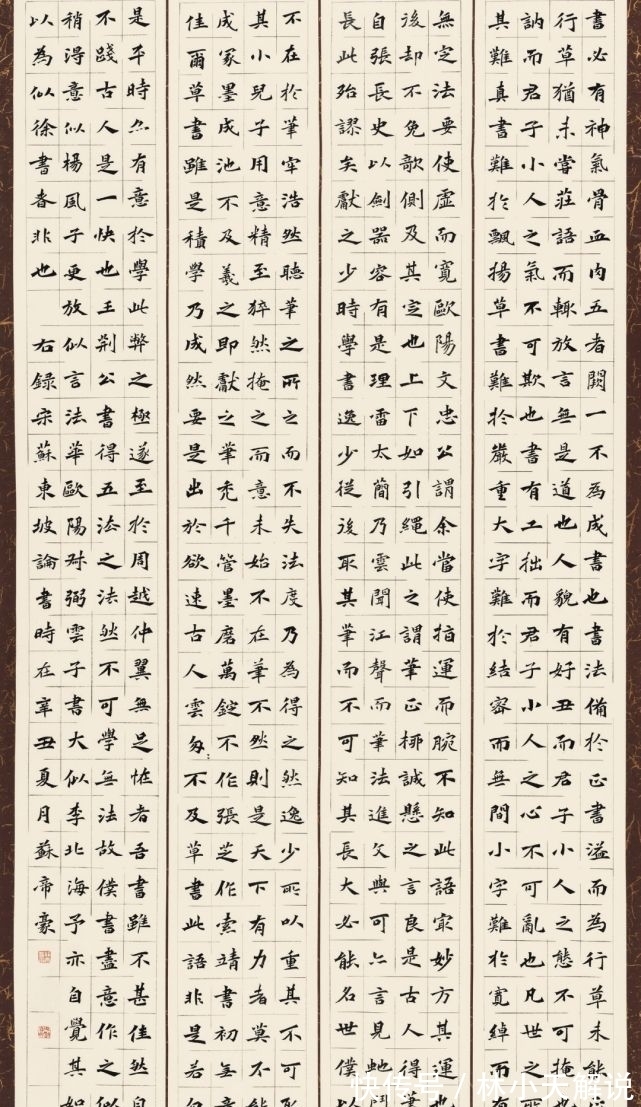 書必有神氣骨血肉五者闕一不為成書也書法備於正書溢而為行草未能
行草猶未嘗莊語而輒放言無是道也人貌有好丑而君子小人之態不可掩也
訥而君子小人之氣不可欺也書有工拙而君子小人之心不可亂也凡世之
其難真書難於飄揚草書難於嚴重大字難於結密而無間小字難於寬綽而有
無定法要使虛而寬歐陽文忠公謂余當使指運而腕不知此語最妙方其運也
後却不免欹側及其定也上下如引繩此之謂筆正柳誠懸之言良是古人得筆
自張長史以劍器容有是理雷太簡乃雲聞江聲而筆法進文與可亦言見虵鬥
長此殆謬矣獻之少時學書逸少從後取其筆而不可知其長大必能名世僕以
不在於筆牢浩然聽筆之所之而不失法度乃為得之然逸少所以重其不可
其小兒子用意精至猝然掩之而意未始不在筆不然則是天下有力者莫不能
成冢墨成池不及羲之即獻之筆禿千管墨磨萬錠不作張芝作索靖書初無意
佳爾草書雖是積學乃成然要是出於欲速古人雲匆〻不及草書此語非是若匆
是平時亦有意於學此弊之極遂至於周越仲翼無足怪者吾書雖不甚佳然自
不踐古人是一快也王荊公書得五法之法然不可學無法故僕書盡意作之似
稍得意似楊風子更放似言法華歐陽叔弼雲子書大似李北海予亦自覺其如
以為似徐書者非也 右錄宋蘇東坡論書時在辛丑夏月蘇帝豪
快传号 / 林小夫解说